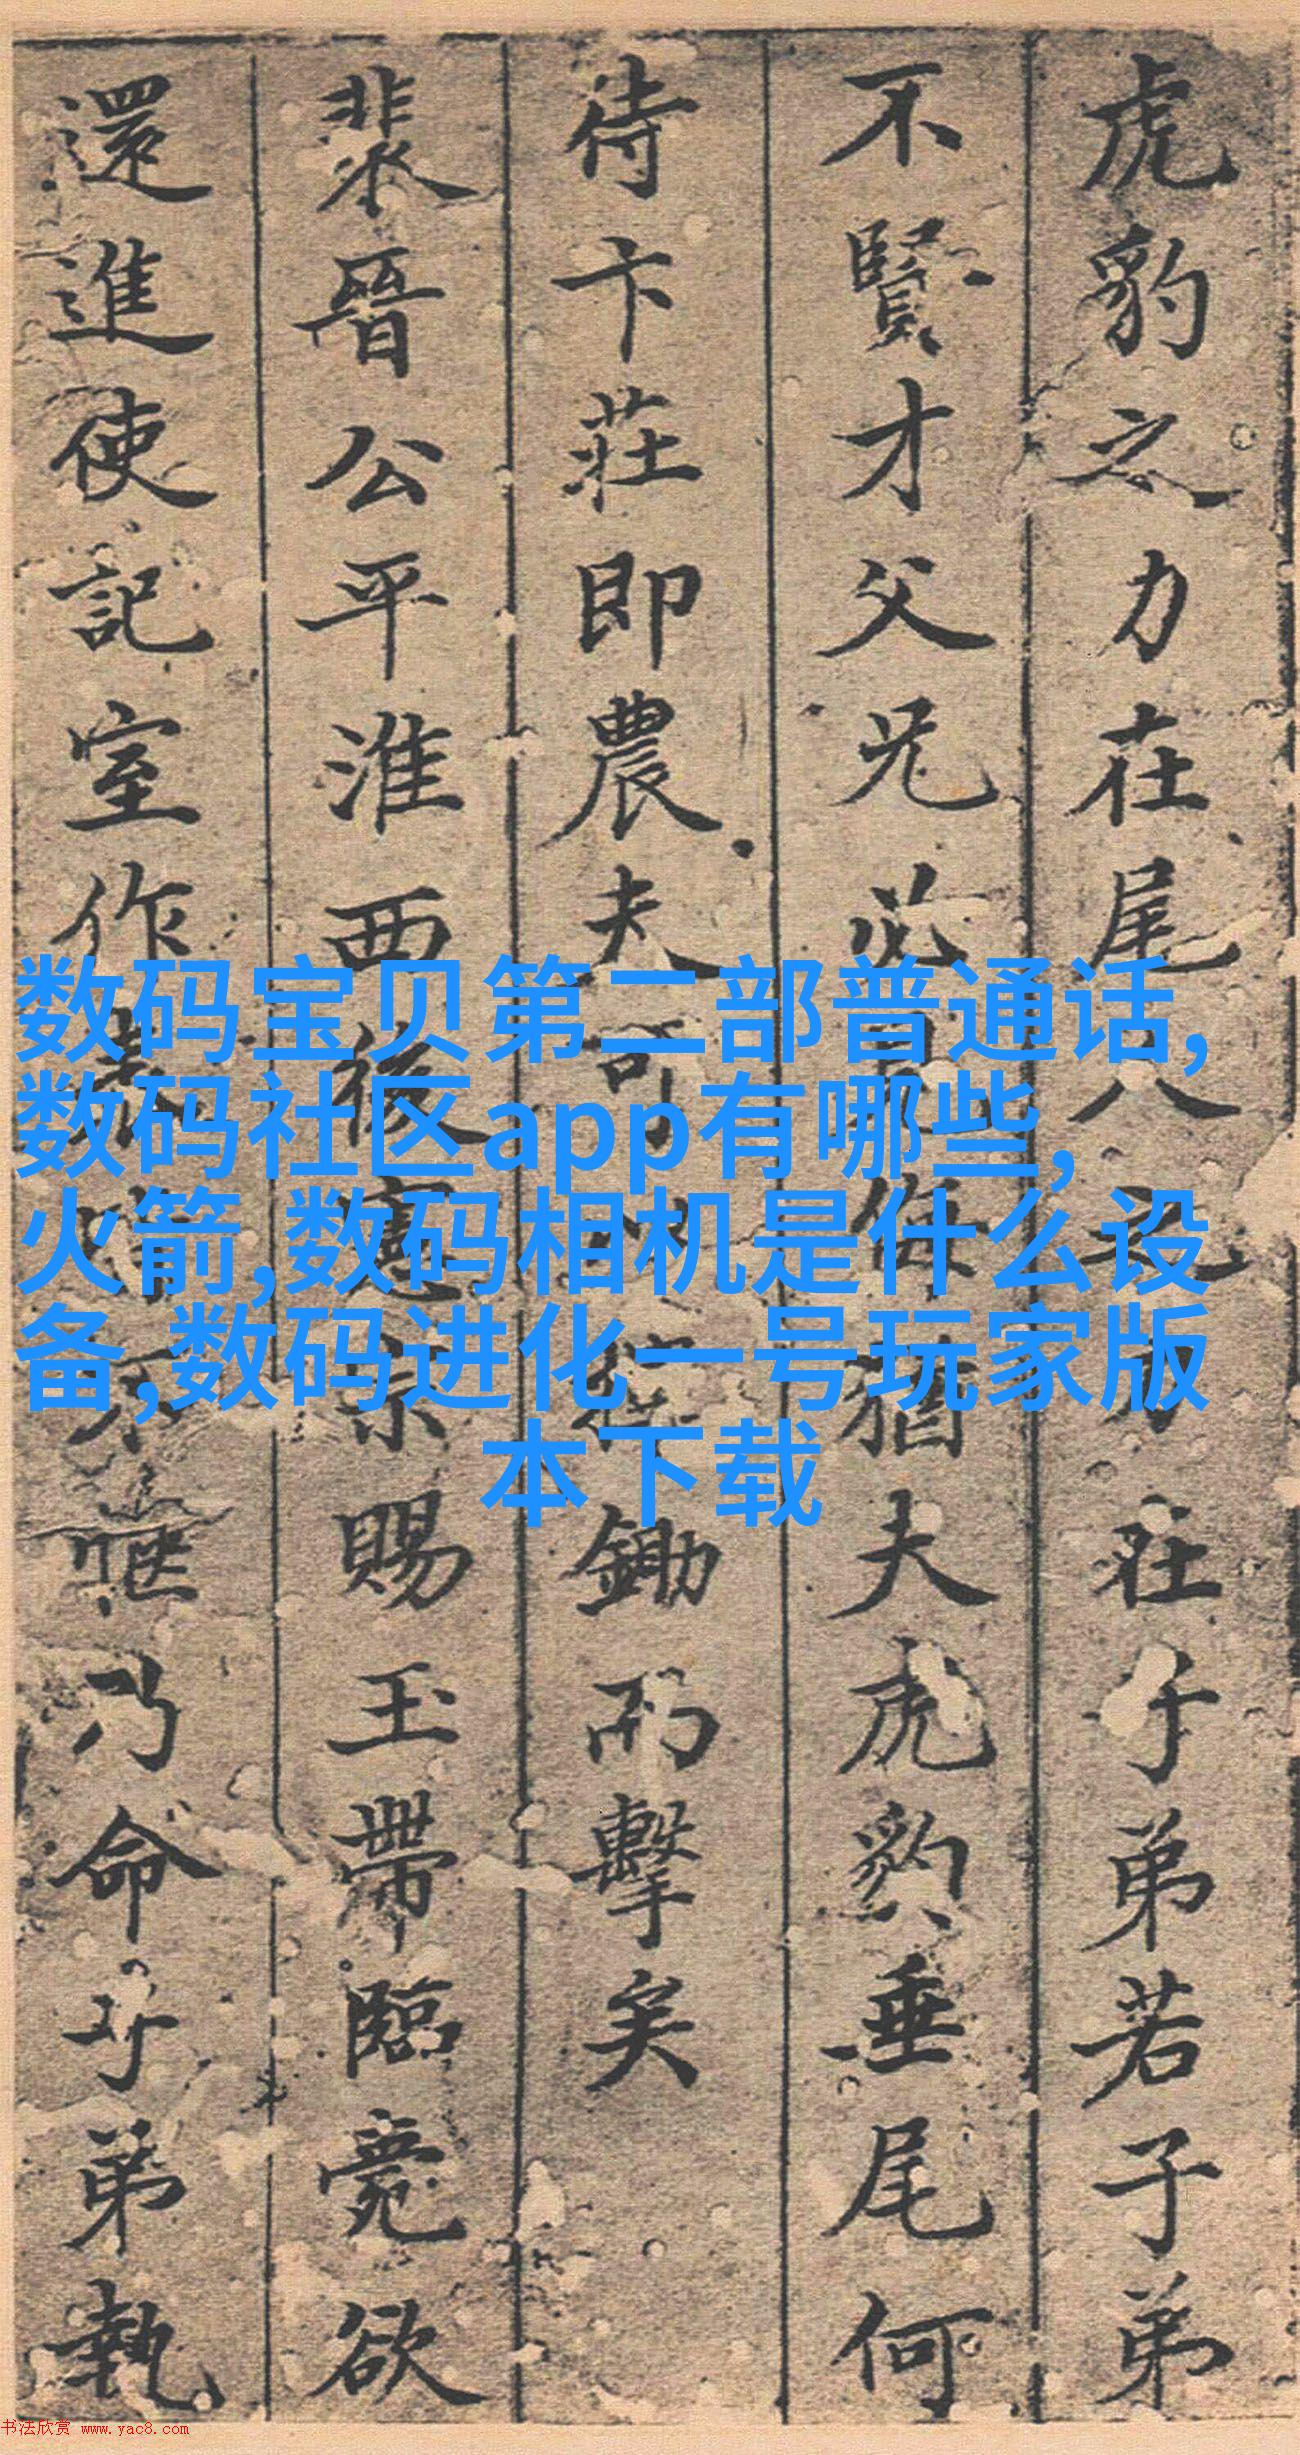 虎豹之力在尾人之力在子弟若子弟
不賢才父兄必見侮猶夫虎豹垂尾何
待卞莊即農夫可以鋤而擊矣
裴晉公平淮西後憲宗賜玉帶臨薨欲
還進使記室作表皆不愜乃命子弟執
数码宝贝第二部普通话,
数码社区app有哪些,
火箭,数码相机是什么设
备,数码进化一号玩家版
本下载
书法欣赏 www.yac8.com